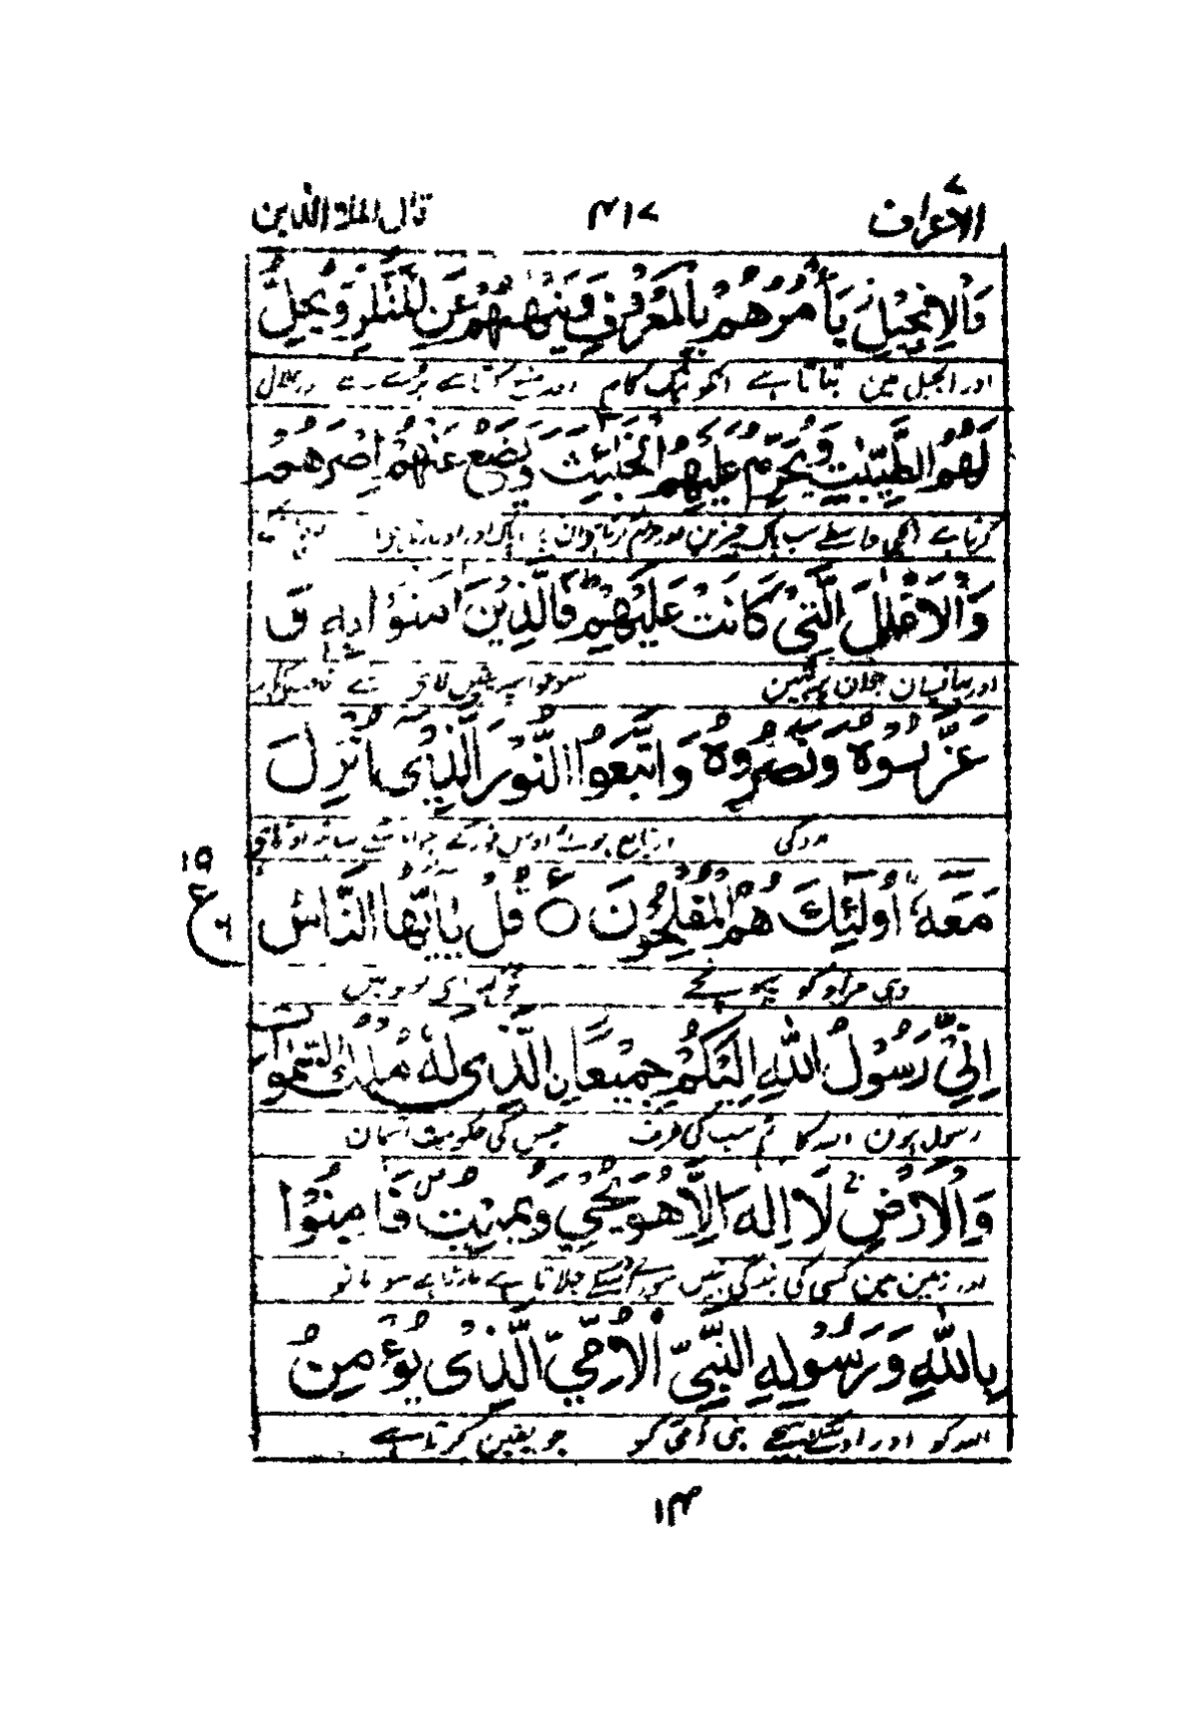 الاعراف ۷ ۴۱۷ قال الملا الذین
وَالْاِنْجِیْلِ یَاْمُرُهُمْ بِالْمَعْرُوْفِ وَیَنْهٰىهُمْ عَنِ الْمُنْكَرِ وَیُحِلُّ
اور انجیل مین بتاتا ہے انکو نیک کام اور منع کرتا ہے برے سے اور حلال
لَهُمُ الطَّیِّبٰتِ وَیُحَرِّمُ عَلَیْهِمُ الْخَبٰٓئِثَ وَیَضَعُ عَنْهُمْ اِصْرَهُمْ
کرتا ہے انکی واسطے سب پاک چیزین اور حرام کرتا
وَالْاَغْلٰلَ الَّتِیْ كَانَتْ عَلَیْهِمْ ؕ فَالَّذِیْنَ اٰمَنُوْا بِهٖ وَ
اور پہانسیان جو ان پر تہین سو جو اسپر یقین لائے
عَزَّرُوْهُ وَنَصَرُوْهُ وَاتَّبَعُوا النُّوْرَ الَّذِیْۤ اُنْزِلَ
مدد کی اور تابع ہوئے اوس نور کے جو اسکے ساتھ
مَعَهٗۤ ۙ اُولٰٓئِكَ هُمُ الْمُفْلِحُوْنَ ۝ قُلْ یٰۤاَیُّهَا النَّاسُ
۱۹ ع ۶
وہی مراد کو پہونچے تو کہہ لوگو مین
اِنِّیْ رَسُوْلُ اللّٰهِ اِلَیْكُمْ جَمِیْعًا ِ۟الَّذِیْ لَهٗ مُلْكُ السَّمٰوٰتِ
رسول ہون اللہ کا تم سب کی طرف جس کی حکومت آسمان
وَالْاَرْضِ ۚ لَاۤ اِلٰهَ اِلَّا هُوَ یُحْیٖ وَیُمِیْتُ ۪ فَاٰمِنُوْا
اور زمین مین کسی کی بندگی نہین سوائے اسکے جلاتا ہے مارتا ہے سو مانو
بِاللّٰهِ وَرَسُوْلِهِ النَّبِیِّ الْاُمِّیِّ الَّذِیْ یُؤْمِنُ
اللہ کو اور اوسکے نبی اُمّی کو جو یقین کرتا ہے